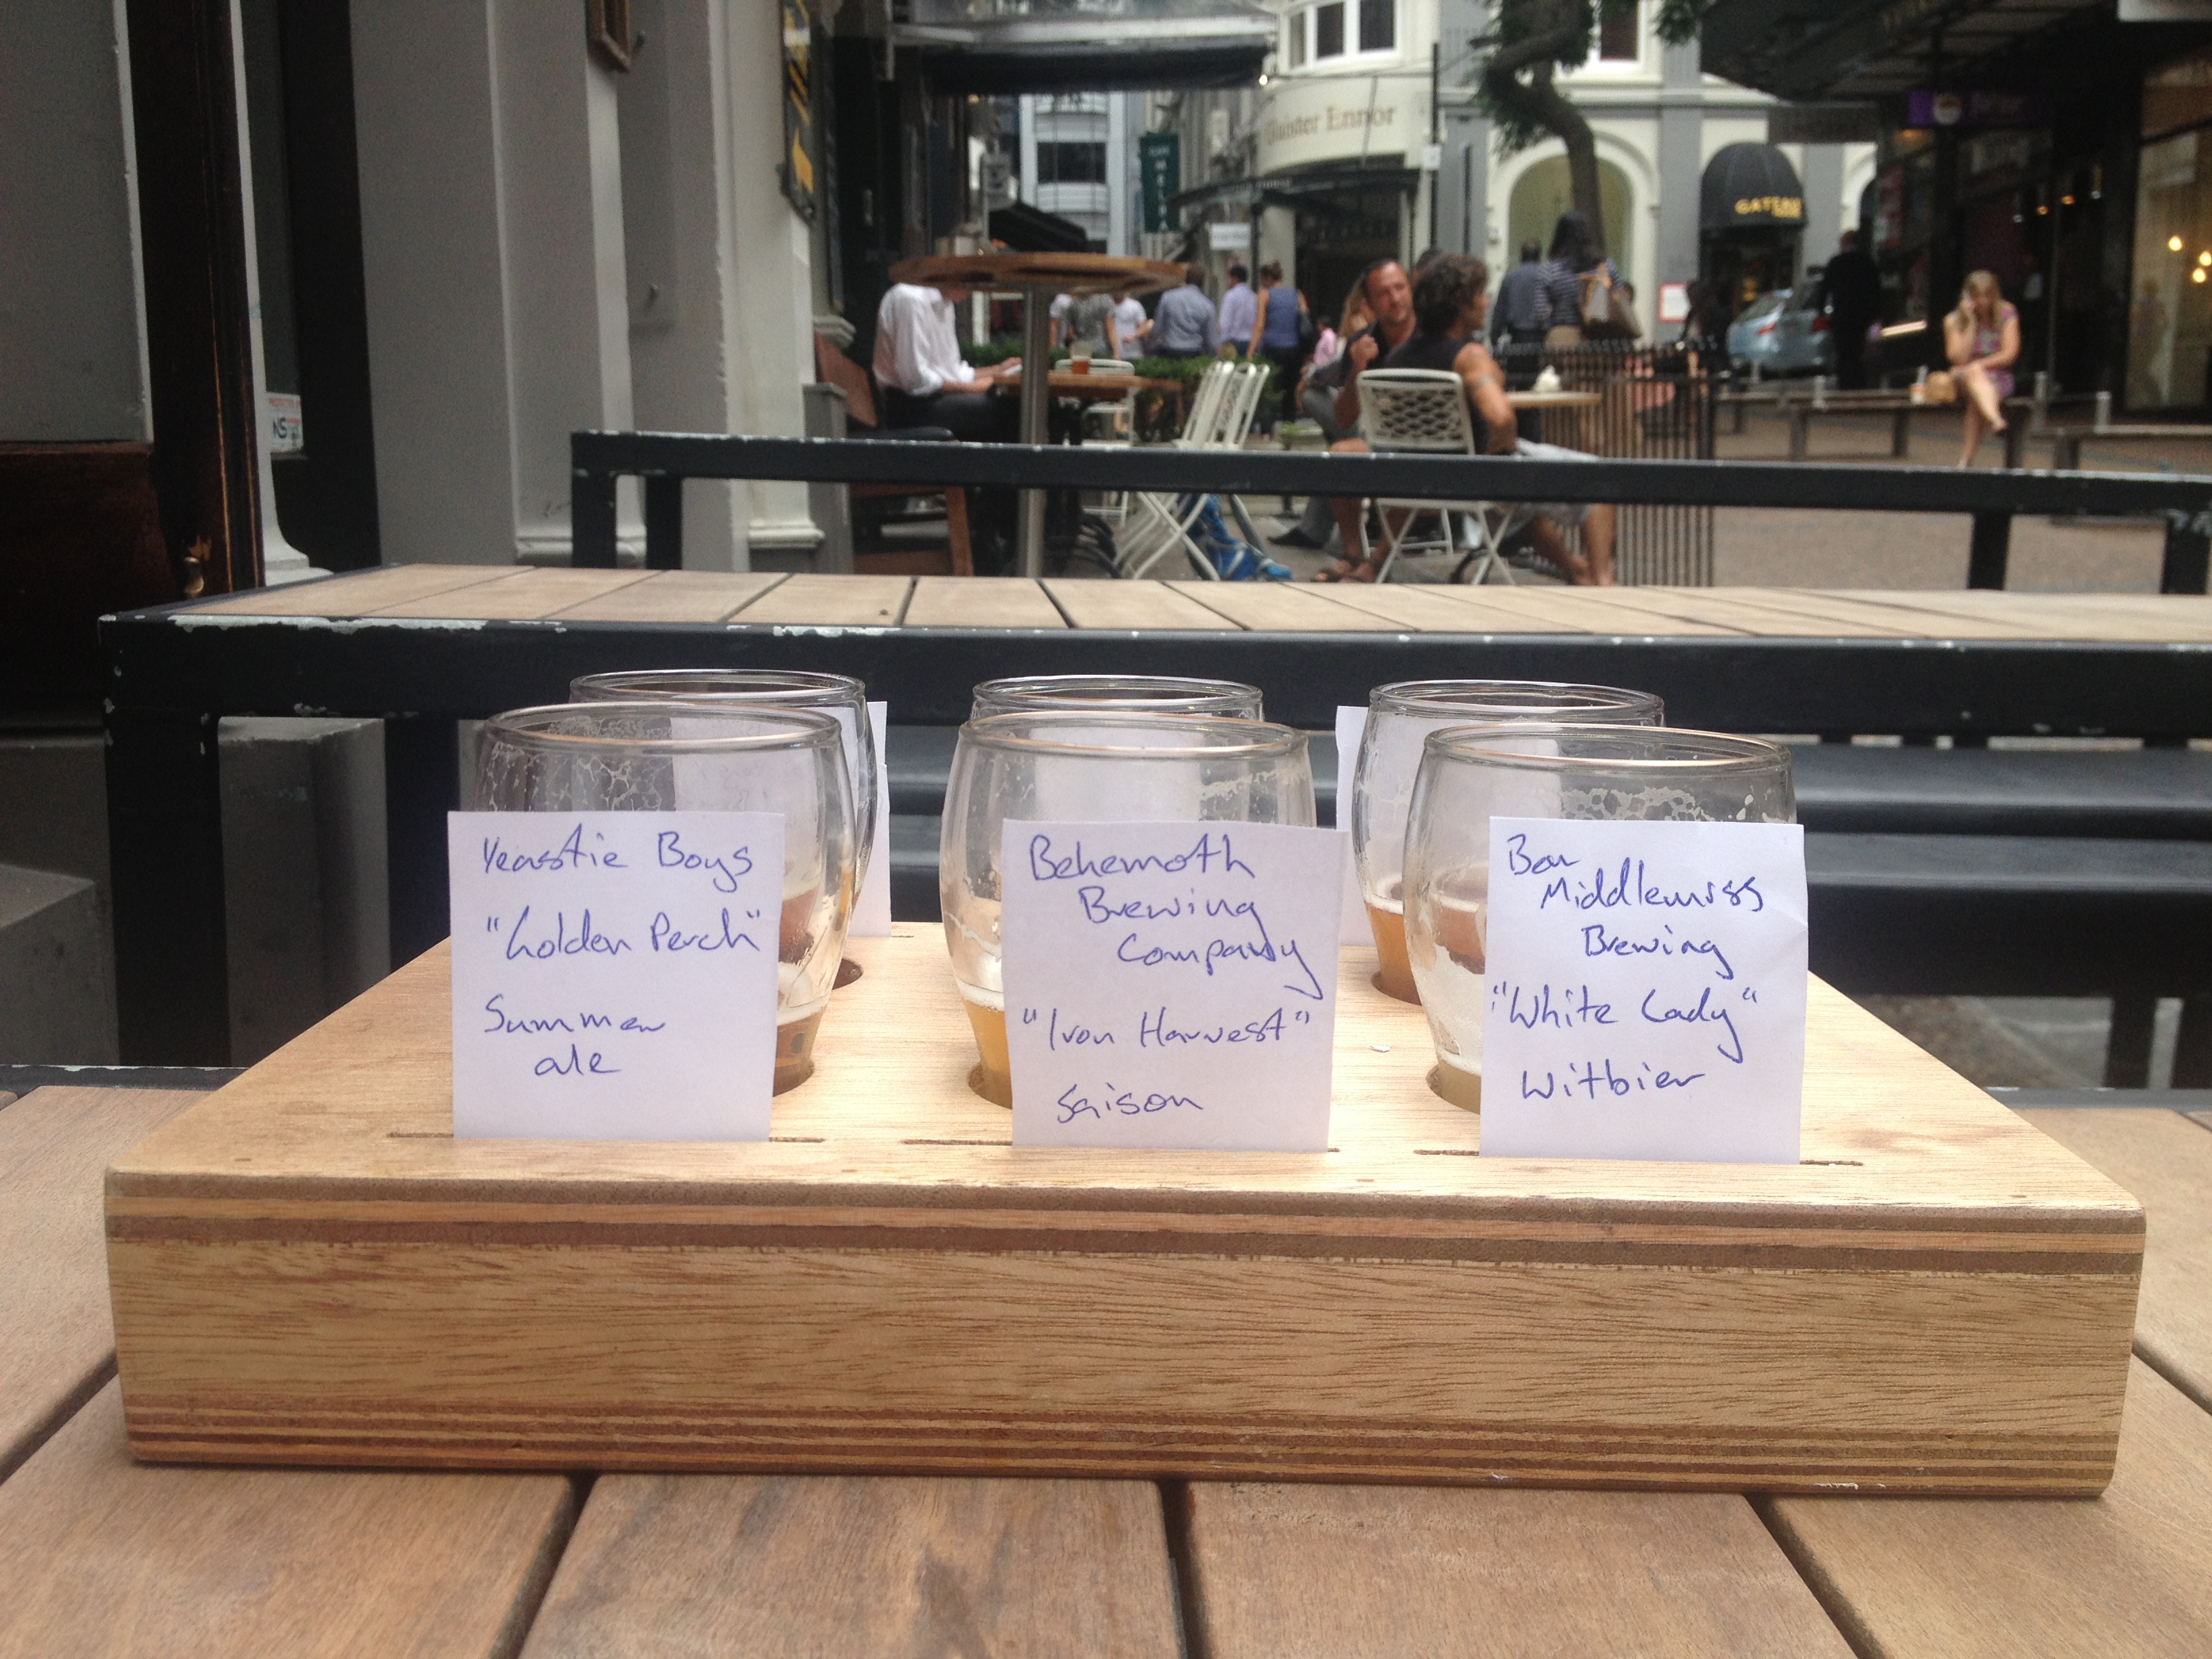 Ennor
GATEAU
NS
Yeastie Boys
"Golden Perch"
Summer
ale
Behemoth
Brewing
Company
"Iron Harvest"
Saison
Ben
Middlemiss
Brewing
"White Lady"
Witbier